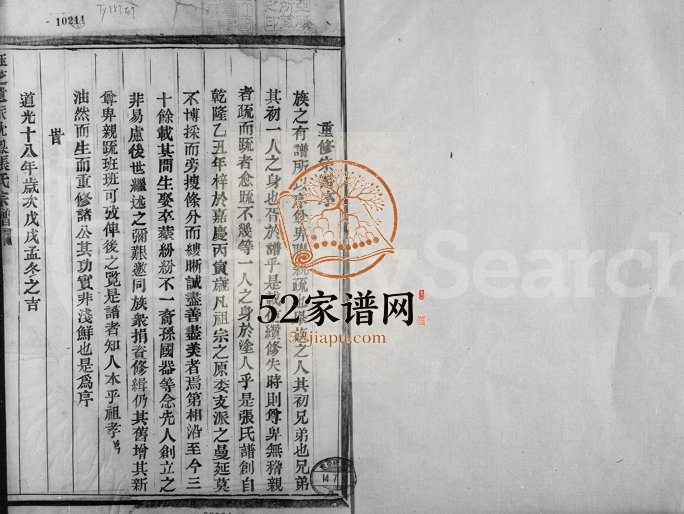 10241
重修宗譜序
族之有譜所以序尊卑聯親疏也與族之人其初兄弟也兄弟
其初一人之身也 於譜乎是 修失時則尊卑無稽親
者疏而疏者愈疏不幾等一人之身於塗人乎是張氏譜創自
乾隆乙丑年梓於嘉慶丙寅歲凡祖宗之原委支派之曼延莫
不博採而旁搜條分而縷晰誠盡善盡美者焉第相沿至今三
十餘載其間生娶卒葬紛紛不一裔孫國器等念先人創立之
非易慮後世繼述之彌艱邀同族衆捐資修緝仍其舊增其新
尊卑親疏班班可攷俾後之覧是譜者知人本乎祖孝弟
油然而生而重修諸公其功實非淺鮮也是爲序
旹
道光十八年歲次戊戌孟冬之吉
張氏宗譜
52家谱网
52jiapu.com
Search
14 7